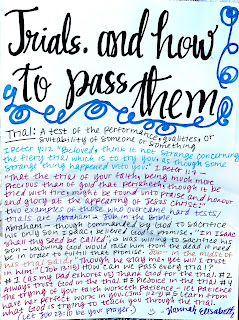 Trials. and how
to pass them
Trial: A test of the performance, qualities, or
suitability of someone or something
1 Peter 4:12 "Beloved, think it not strange concerning
the fiery trial which is to try you, as though some
strange thing happened unto you:" 1 Peter 1:7 -
"that the trial of your faith, being much more
precious than of gold that perisheth, though it be
tried with fire, might be found unto praise and honour
and glory at the appearing of Jesus Christ:"
two examples of those who overcame hard tests/
trials are Abraham & Job in the Bible.
Abraham - though commanded by God to sacrifice
his only son Isaac, believed God's promise, "In Isaac
shall thy seed be called", & was willing to sacrifice his
son - knowing God would raise him from the dead if need
be in order to fulfill that promise. Job - in the midst of
his trial said, "though he slay me, yet will I trust
in him!" (Job 13:15) How can we pass every trial?
#1 (as my Dad shares w/ us) Thank God for the trial. #2
ALWAYS trust God in the trial #3 Produce in the trial #4
the trying of your faith worketh patience - let Patience
have her perfect work in you. (James 1:2-4) & learn
what God is trying to teach you through the trial.
(let Job 23:10 be your prayer.) Hannah Elisabeth